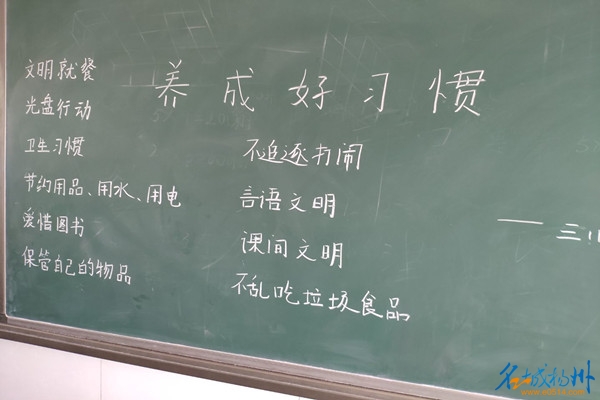 养成好习惯
文明就餐
光盘行动
卫生习惯
节约用品、用水、用电
爱惜图书
保管自己的物品
不追逐打闹
言语文明
课间文明
不乱吃垃圾食品
——三
名城扬州